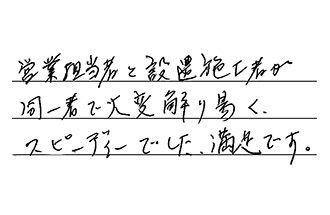 営業担当者と設置施工者が
同一者で大変解り易く、
スピーディーでした、満足です。